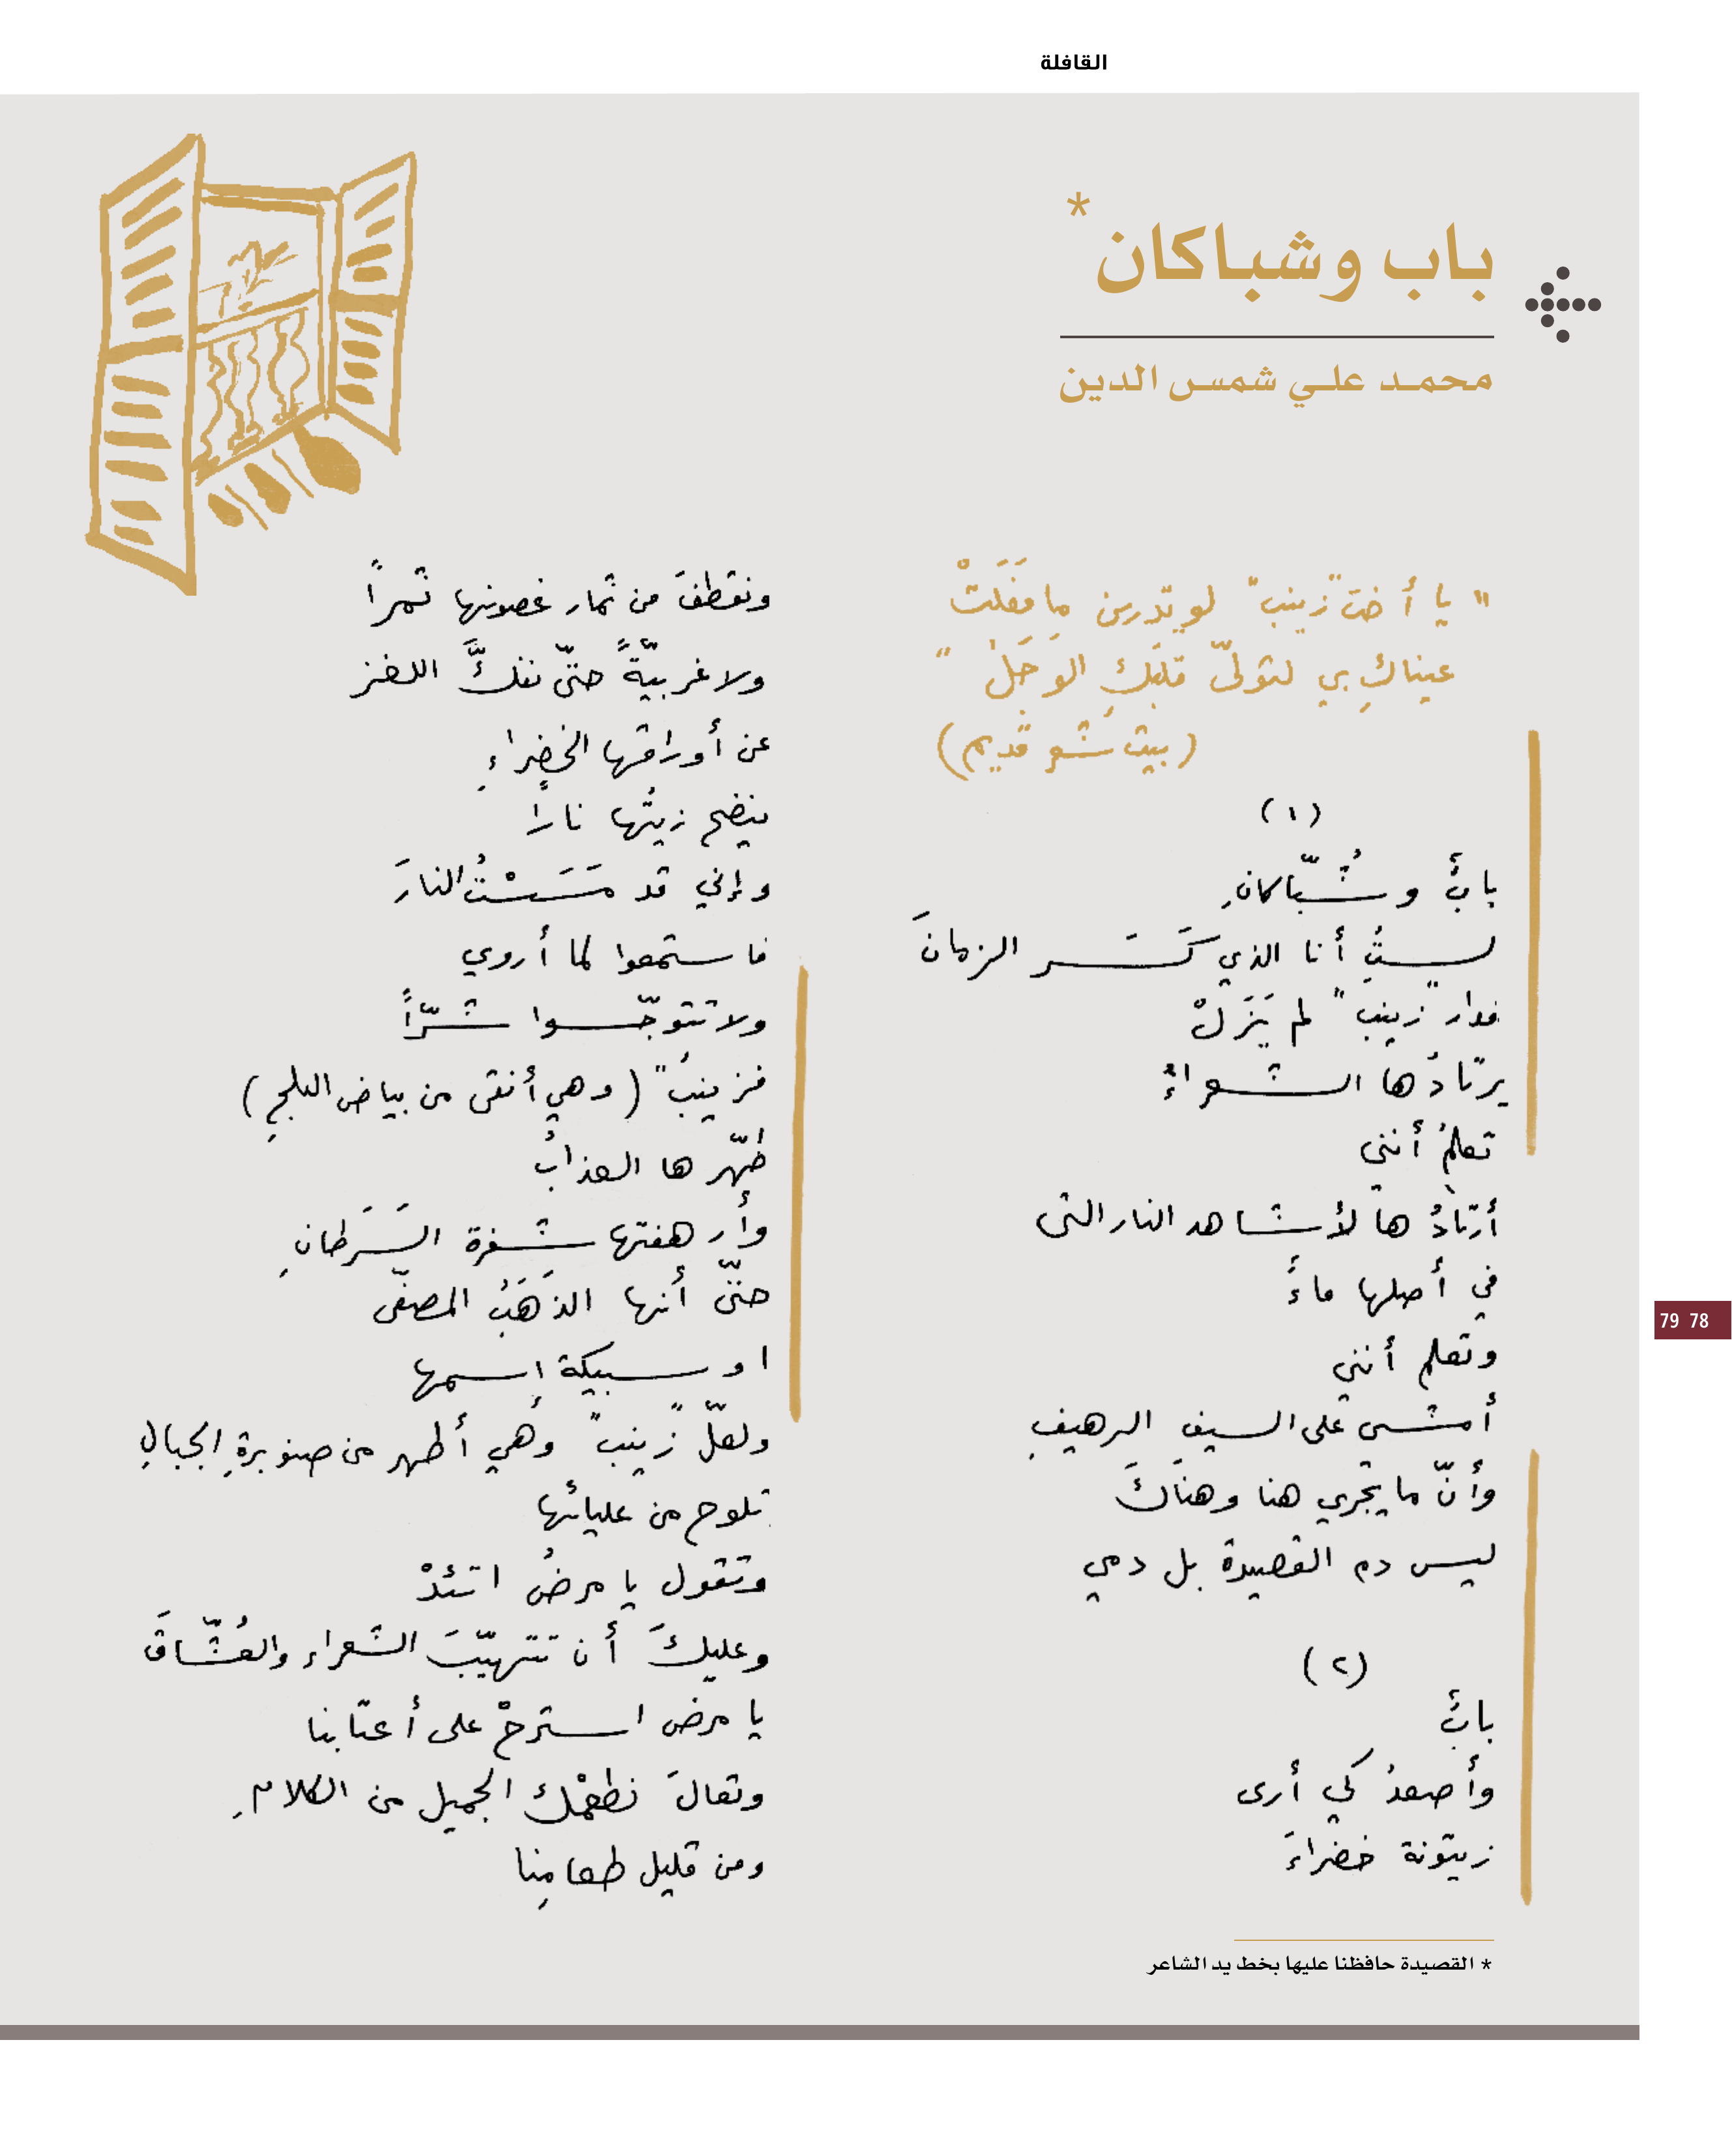 القافلة
باب وشباكان*
محمد علي شمس الدين
" يا أختَ "زينب" لو تدرين ما فَعَلَتْ
عيناكِ بي لتولّى قلبَكِ الوَجَلُ "
(بيت شعر قديم)
(١)
بابٌ وشُبّاكانِ
لستُ أنا الذي كَسَر الزمانَ
فدار "زينب" لم يَزَلْ
يرتادُها الشعراءُ
تعلمُ أنني
أرتادُها لأشاهد النار التي
في أصلها ماءٌ
وتعلم أنني
أمشي على السيف الرهيفِ
وأنّ ما يجري هنا وهناكَ
ليس دم القصيدة بل دمي
(٢)
بابٌ
وأصعدُ كي أرى
زيتونة خضراءَ
ونقطفَ من ثمار غصونها ثمراً
ولا غربيّةً حتّى نفكَّ اللغز
عن أوراقها الخضراءِ
ينضح زيتُها ناراً
وإني قد مَسَسْتُ النارَ
فاستمعوا لما أروي
ولا تتوجّسوا شرّاً
فزينبُ" (وهي أنقى من بياض الثلجِ)
طهّرها العذابُ
وأرهفتها شفرة السَرَطانِ
حتّى أنها الذَهَبُ المصفّى
او سبيكة إسمها
ولعلّ "زينب" وهي أطهر من صنوبرةِ الجبالِ
تلوح من عليائها
وتقول يا مرضُ اتئدْ
وعليكَ أن تتهيّبَ الشعراء والعُشّاقَ
يا مرض استرحْ على أعتابنا
وتعالَ نطعمْك الجميل من الكلامِ
ومن قليل طعامِنا
79 78
* القصيدة حافظنا عليها بخط يد الشاعر